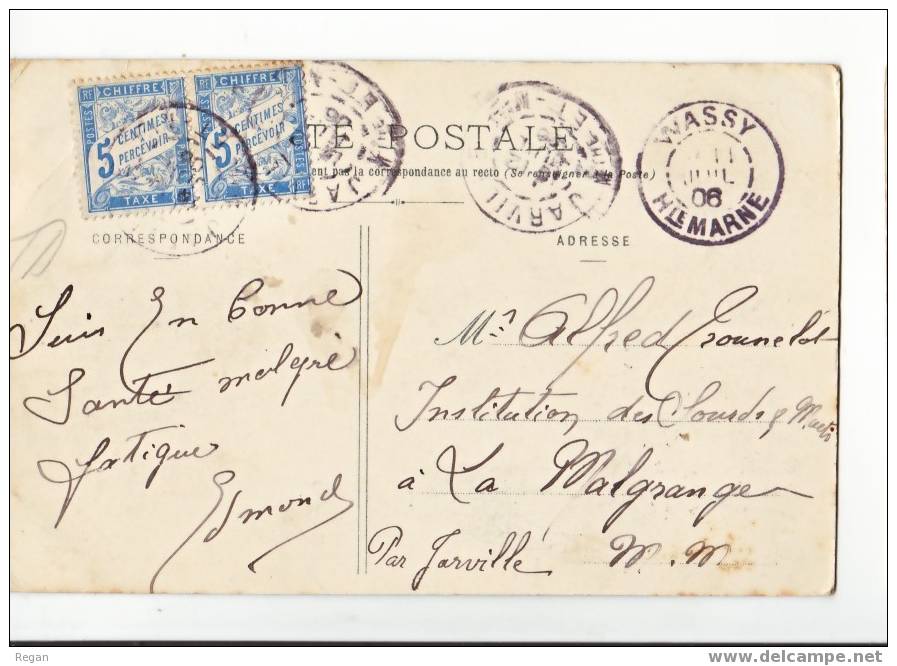 RF CHIFFRE RF CHIFFRE RF
POSTES 5 CENTIMES A PERCEVOIR 5 CENTIMES A PERCEVOIR POSTES
TAXE TAXE
TE POSTALE
ent pas la correspondance au recto (Se renseigner à la Poste)
JARVIL
WASSY
JUIL
06
HTE MARNE
CORRESPONDANCE
Suis En bonne
Santé malgré
fatigue
Edmond
ADRESSE
Mr Alfred
Institution des Sourds & Muets
à La Malgrange
Par Jarville M. M
Regan
www.delcampe.net